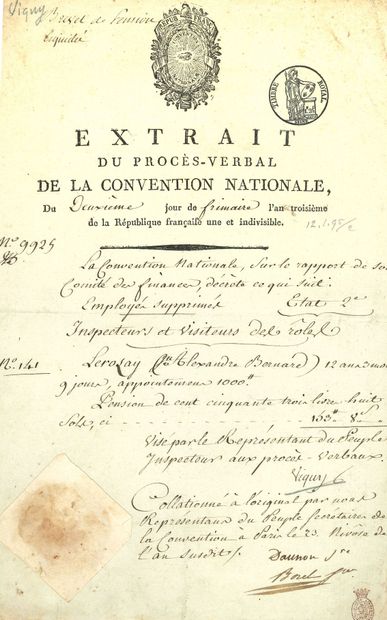 Vigny
Brevet de Pension
liquidée
TIMBRE ROYAL
EXTRAIT
DU PROCÈS-VERBAL
DE LA CONVENTION NATIONALE,
Du Deuxième jour de frimaire l'an troisième
de la République française une et indivisible.
12.1.95/2
No. 9925
La Convention Nationale, Sur le rapport de son
Comité des finances, décrète ce qui suit:
Employés supprimés Etat 2e
Inspecteurs et visiteurs des rôles
No. 141 Lerosay (Alexandre Bernard) 12 ans 3 mois
9 jours, appointemens 1000tt
Pension de cent cinquante trois livres huit
Sols, ci 153tt 8s
Visé par le Représentant du Peuple
Inspecteur aux procès-verbaux.
Viguy
Collationné à l'original par nous
Représentans du Peuple Secrétaires de
la Convention à Paris le 23 Nivôse de
l'an susdit/.
Daunou Sre
Borel Sre